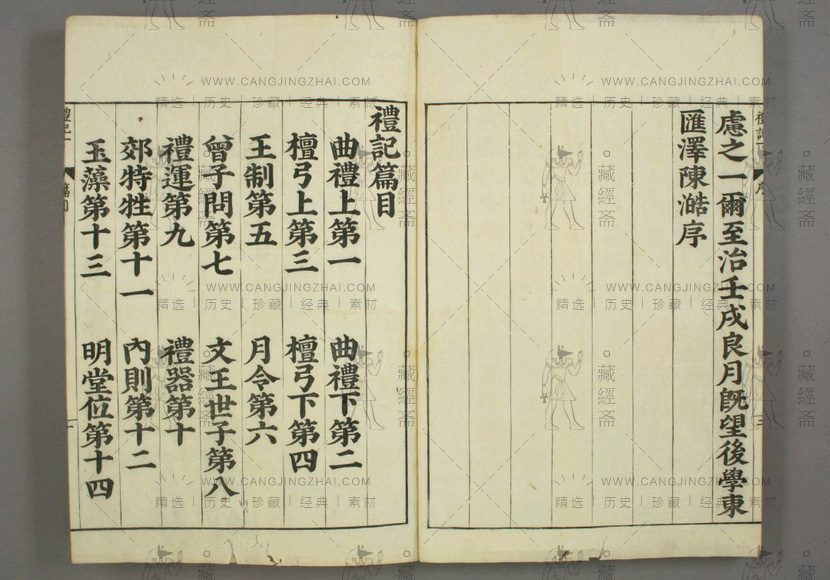 慮之一爾至治壬戌良月既望後學東
匯澤陳澔序
禮記篇目
曲禮上第一 曲禮下第二
檀弓上第三 檀弓下第四
王制第五 月令第六
曾子問第七 文王世子第八
禮運第九 禮器第十
郊特牲第十一 內則第十二
玉藻第十三 明堂位第十四
WWW.CANGJINGZHAI.COM
精选 | 历史 | 珍藏 | 经典 | 素材
藏經斋